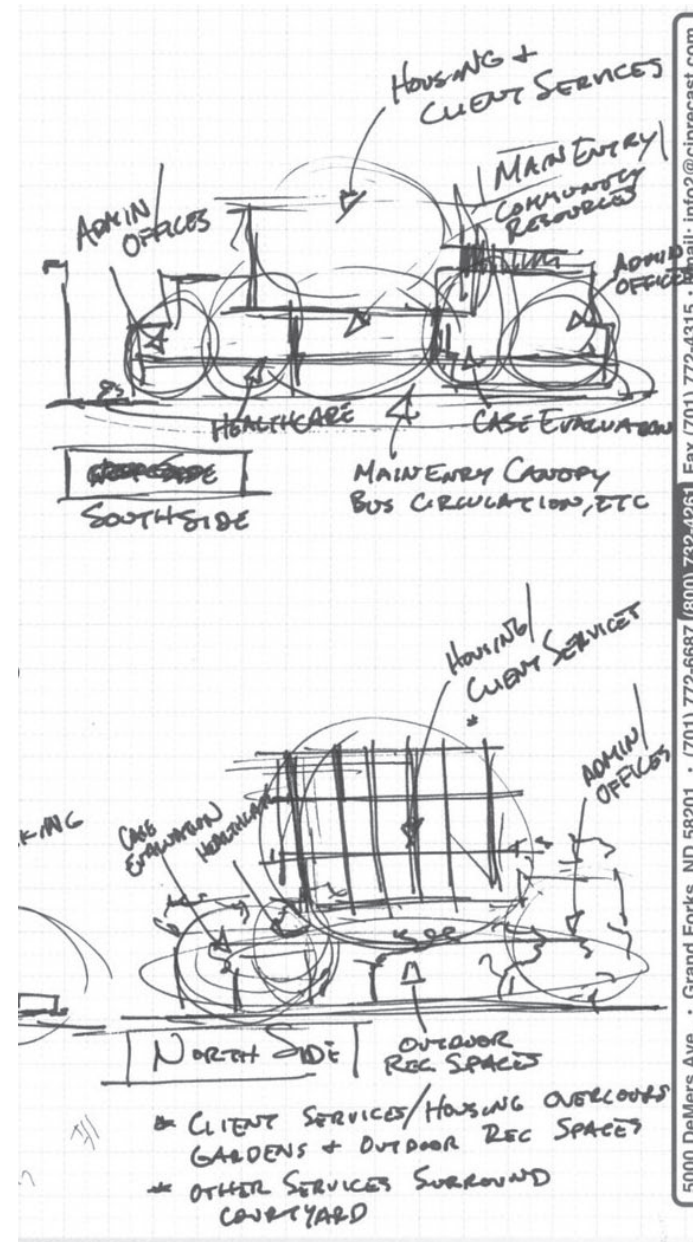 HOUSING +
CLIENT SERVICES
MAIN ENTRY/
COMMUNITY
RESOURCES
ADMIN/
OFFICES
ADMIN
OFFICES
HEALTHCARE
CASE EVALUATION
MAIN ENRY CANOPY
BUS CIRCULATION, ETC
SOUTH SIDE
HOUSING/
CLIENT SERVICES
*
ADMIN/
OFFICES
KING
CASE
EVALUATION
HEALTHCARE
NORTH SIDE
OUTDOOR
REC. SPACES
* CLIENT SERVICES/HOUSING OVERLOOKS
GARDENS + OUTDOOR REC SPACES
* OTHER SERVICES SURROUND
COURTYARD
5000 DeMers Ave. · Grand Forks, ND 58201 · (701) 772-6687 (800) 732-4261 Fax (701) 772-4315 · email: info2@ciprecast.com